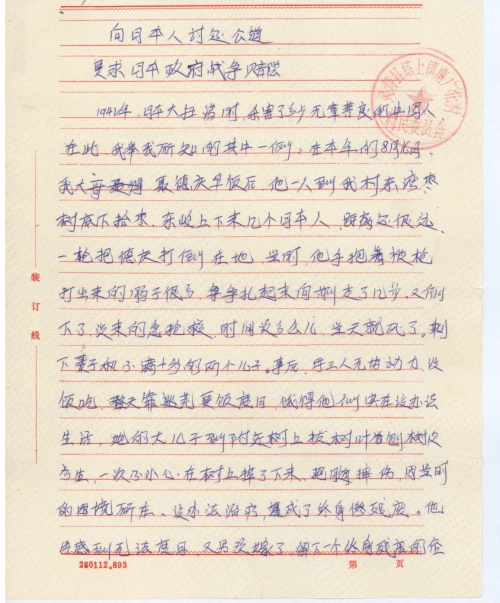 向日本人讨还公道
要求日本政府战争赔偿
1941年，日军大扫荡时，杀害了多少无辜善良的中国人
在此，我举我所知的其中一例，在本年的8月
我大哥聂德庆早饭后，他一人到我村东湾枣
树底下拾枣，东坡上下来几个日本人，距离还很远
一枪把德庆打倒在地，当时，他手抱着被枪
打出来的肠子很多，争争扎起来向前走了几步，又倒
下了，没来的急抢救，时间没多么儿，当天就死了。剩
下妻子和不满十岁的两个儿子。事后，母三人无劳动力，没
饭吃，整天靠逃荒要饭度日，饿得他们实在没办法
生活，她的大儿子到村边树上拔树叶
一次不小心，在树上掉了下来，把腰摔伤，因当时
的困境所在，没办法治疗，造成了终身残废。他
母感到无法度日，又另改嫁了，留下一个终身残废的侄
装订线
280112.893
第 页